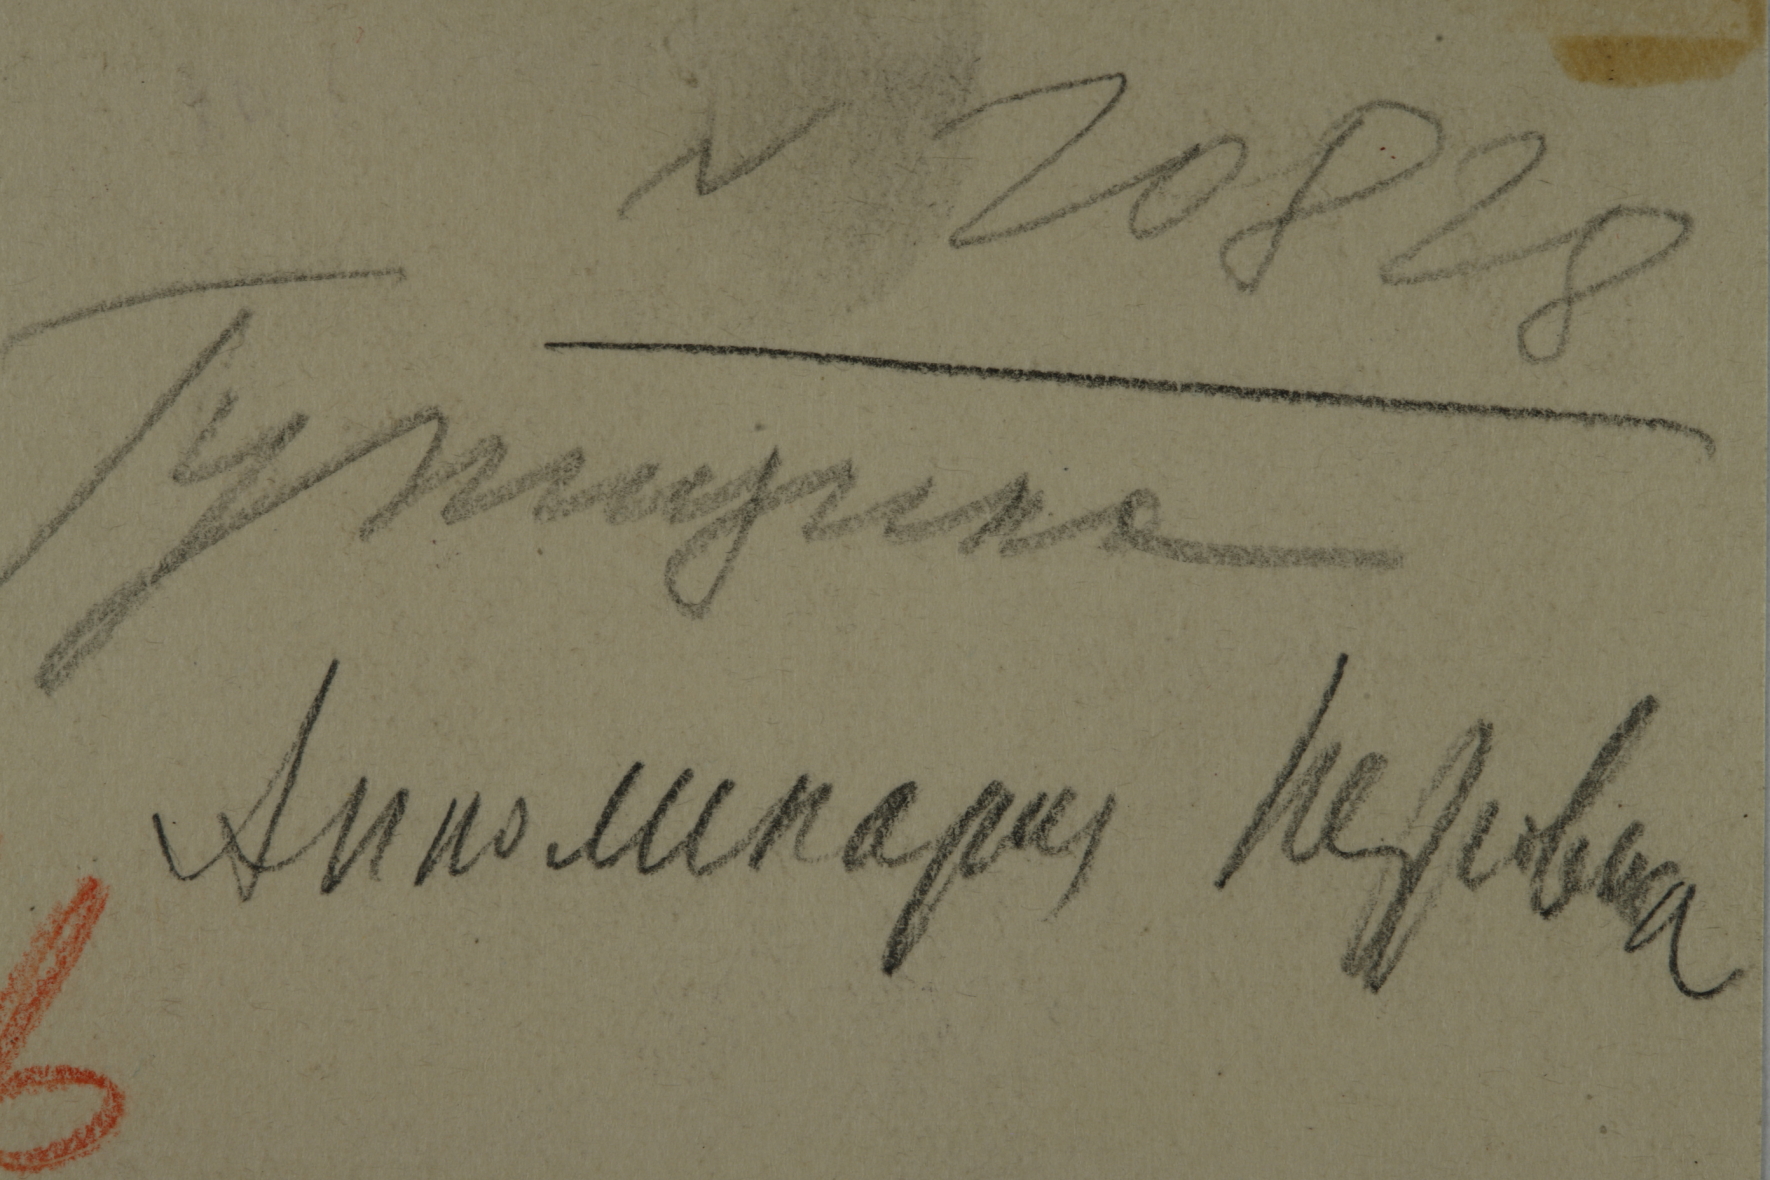 N 20828
Гупицина
Апполинария Петровна